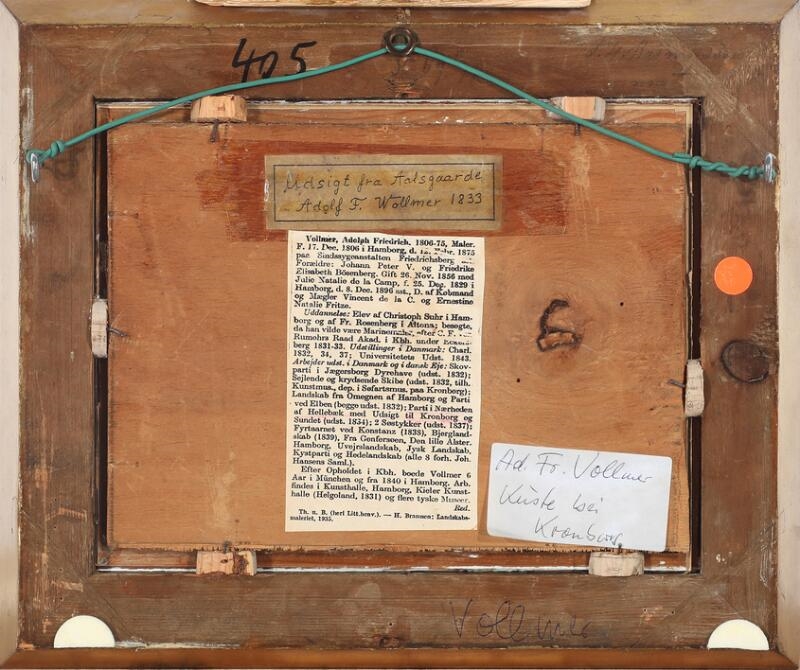 405
Udsigt fra Aalsgaarde
Adolf F. Wollmer 1833
Vollmer, Adolph Friedrich, 1806-75, Maler.
F. 17. Dec. 1806 i Hamborg, d. 12. Febr. 1875
paa Sindssygeanstalten Friedrichsberg
Forældre: Johann Peter V. og Friedrike
Elisabeth Bösenberg. Gift 26. Nov. 1856 med
Julie Natalie de la Camp, f. 25. Dec. 1829 i
Hamborg, d. 8. Dec. 1896 sst., D. af Købmand
og Mægler Vincent de la C. og Ernestine
Natalie Fritze.
Uddannelse: Elev af Christoph Suhr i Ham-
borg og af Fr. Rosenberg i Altona; besøgte,
da han vilde være Marinemaler, efter C. F.
Rumohrs Raad Akad. i Kbh. under
berg 1831-33. Udstillinger i Danmark: Charl.
1832, 34, 37; Universitetets Udst. 1843.
Arbejder udst. i Danmark og i dansk Eje: Skov-
parti i Jægersborg Dyrehave (udst. 1832);
Sejlende og krydsende Skibe (udst. 1832, tilh.
Kunstmus., dep. i Søfartsmus. paa Kronborg);
Landskab fra Omegnen af Hamborg og Parti
ved Elben (begge udst. 1832); Parti i Nærheden
af Hellebæk med Udsigt til Kronborg og
Sundet (udst. 1834); 2 Søstykker (udst. 1837);
Fyrtaarnet ved Konstanz (1838), Bjergland-
skab (1839), Fra Genfersøen, Den lille Alster,
Hamborg, Uvejrslandskab, Jysk Landskab,
Kystparti og Hedelandskab (alle 8 forh. Joh.
Hansens Saml.).
Efter Opholdet i Kbh. boede Vollmer 6
Aar i München og fra 1840 i Hamborg. Arb.
findes i Kunsthalle, Hamborg, Kieler Kunst-
halle (Helgoland, 1831) og flere tyske Museer.
Red.
Th. u. B. (heri Litt.henv.). — H. Bramsen: Landskabs-
maleriet, 1935.
Ad. Fr. Vollmer
Küste bei
Kronborg
Vollmer